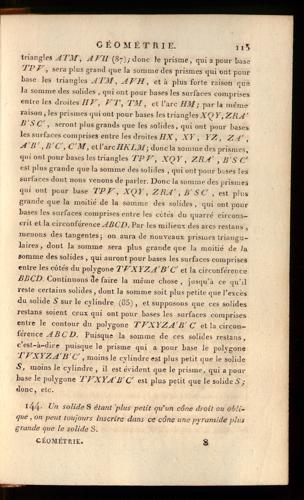 GÉOMÉTRIE. 113
triangles ATM, AVH (87); donc le prisme, qui a pour base
TPV, sera plus grand que la somme des prismes qui ont pour
base les triangles ATM, AVH, et à plus forte raison que
la somme des solides, qui ont pour bases les surfaces comprises
entre les droites HV, VT, TM, et l'arc HM; par la même
raison, les prismes qui ont pour bases les triangles XQY, ZRA'
B'SC', seront plus grands que les solides, qui ont pour bases
les surfaces comprises entre les droites HX, XY, YZ, ZA',
A'B', B'C', C'M, et l'arc HKLM; donc la somme des prismes,
qui ont pour bases les triangles TPV, XQY, ZRA', B'SC'
est plus grande que la somme des solides, qui ont pour bases les
surfaces dont nous venons de parler. Donc la somme des prismes
qui ont pour base TPV, XQY, ZRA', B'SC', est plus
grande que la moitié de la somme des solides, qui ont pour
bases les surfaces comprises entre les côtés du quarré circons-
crit et la circonférence ABCD. Par les milieux des arcs restans,
menons des tangentes; on aura de nouveaux prismes triangu-
laires, dont la somme sera plus grande que la moitié de la
somme des solides, qui auront pour bases les surfaces comprises
entre les côtés du polygone TVXYZA'B'C' et la circonférence
BBCD. Continuons de faire la même chose, jusqu'à ce qu'il
reste certains solides, dont la somme soit plus petite que l'excès
du solide S sur le cylindre (85), et supposons que ces solides
restans soient ceux qui ont pour bases les surfaces comprises
entre le contour du polygone TVXYZA'B'C' et la circon-
férence ABCD. Puisque la somme de ces solides restans,
c'est-à-dire puisque le prisme qui a pour base le polygone
TVXYZA'B'C', moins le cylindre est plus petit que le solide
S, moins le cylindre, il est évident que le prisme, qui a pour
base le polygone TVXYA'B'C' est plus petit que le solide S;
donc, etc.
144. Un solide S étant plus petit qu'un cône droit ou obli-
que, on peut toujours inscrire dans ce cône une pyramide plus
grande que le solide S.
GÉOMÉTRIE. 8